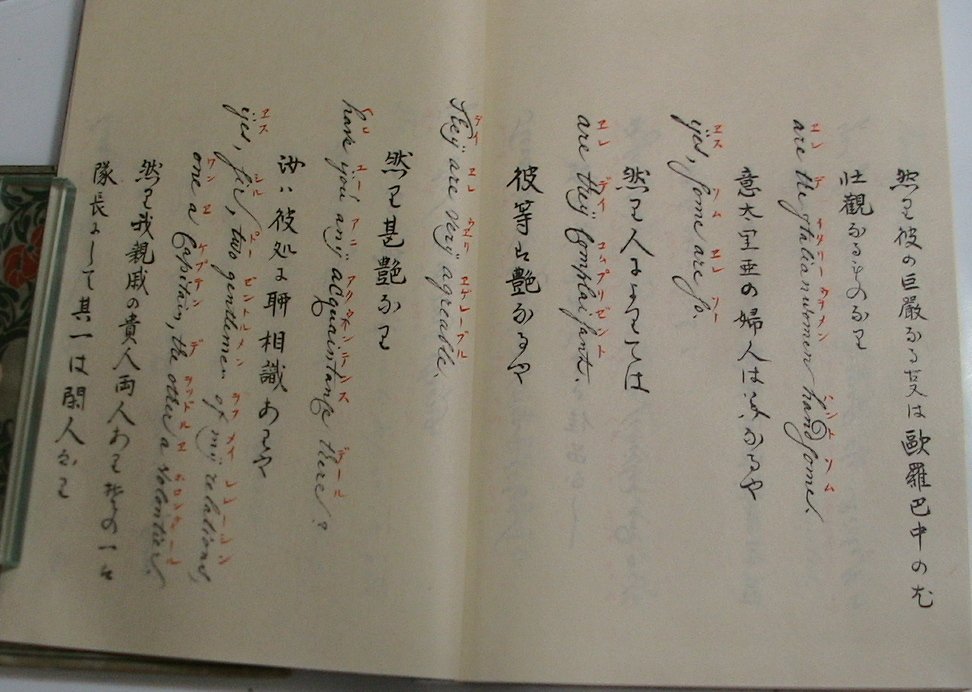 然り彼の巨嚴なる支は歐羅巴中の尤
壯觀なるものなり
ヱレ デ イタリー ウヲメン ハンド ソム
are the ytalian women handsome.
意太里亜の婦人は美なるや
ヱス ソム ヱレ ソー
yes, some are so.
然り人によりては
ヱレ デイ コムプリゼント
are they complaisant.
彼等は艶なるや
デイ ヱレ ウエリ ヱゲレーブル
They are very agreable.
然り甚艶なり
ユー アニ アクウヱインテンス デール
have you any acquaintance there?
汝は彼処に聊相識ありや
ヱス シル トー ゼントルメン ヲフ メイ
yes, sir, two gendemen of my relations,
ワン ヱ ケプテン デ
one a Capitain, the other a volontier.
然り我親戚の貴人両人あり其の一は
隊長にして其一は閑人なり